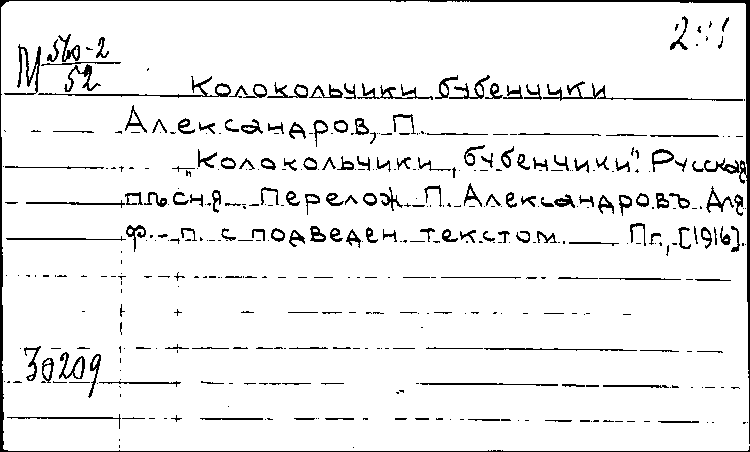 М 560-2
52
Колокольчики бубенчики
Александров, П.
„Колокольчики, бубенчики". Русская
пѣсня. Перелож. П. Александровъ. Для
ф.-п. с подведен. текстом. Пг., [1916].
30209